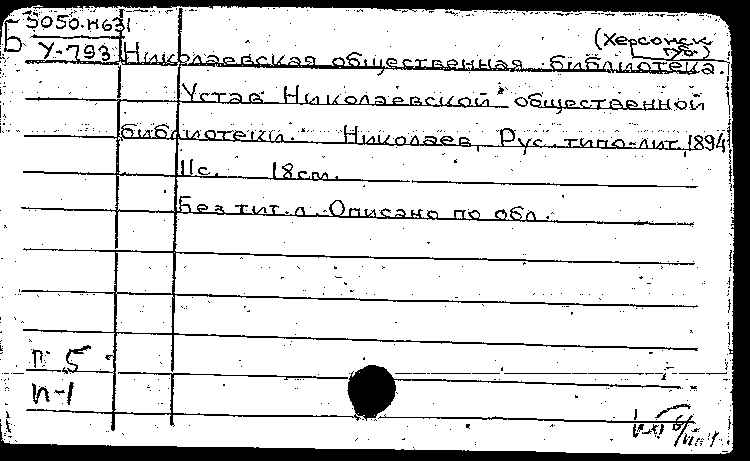 5050.н631
(Херсонск. губ.)
У-793 Николаевская общественная библиотека.
Устав Николаевской общественной
библиотеки. Николаев, Рус. типо-лит, 1894
11с. 18см.
Без тит. л. Описано по обл.
п 5
п-1